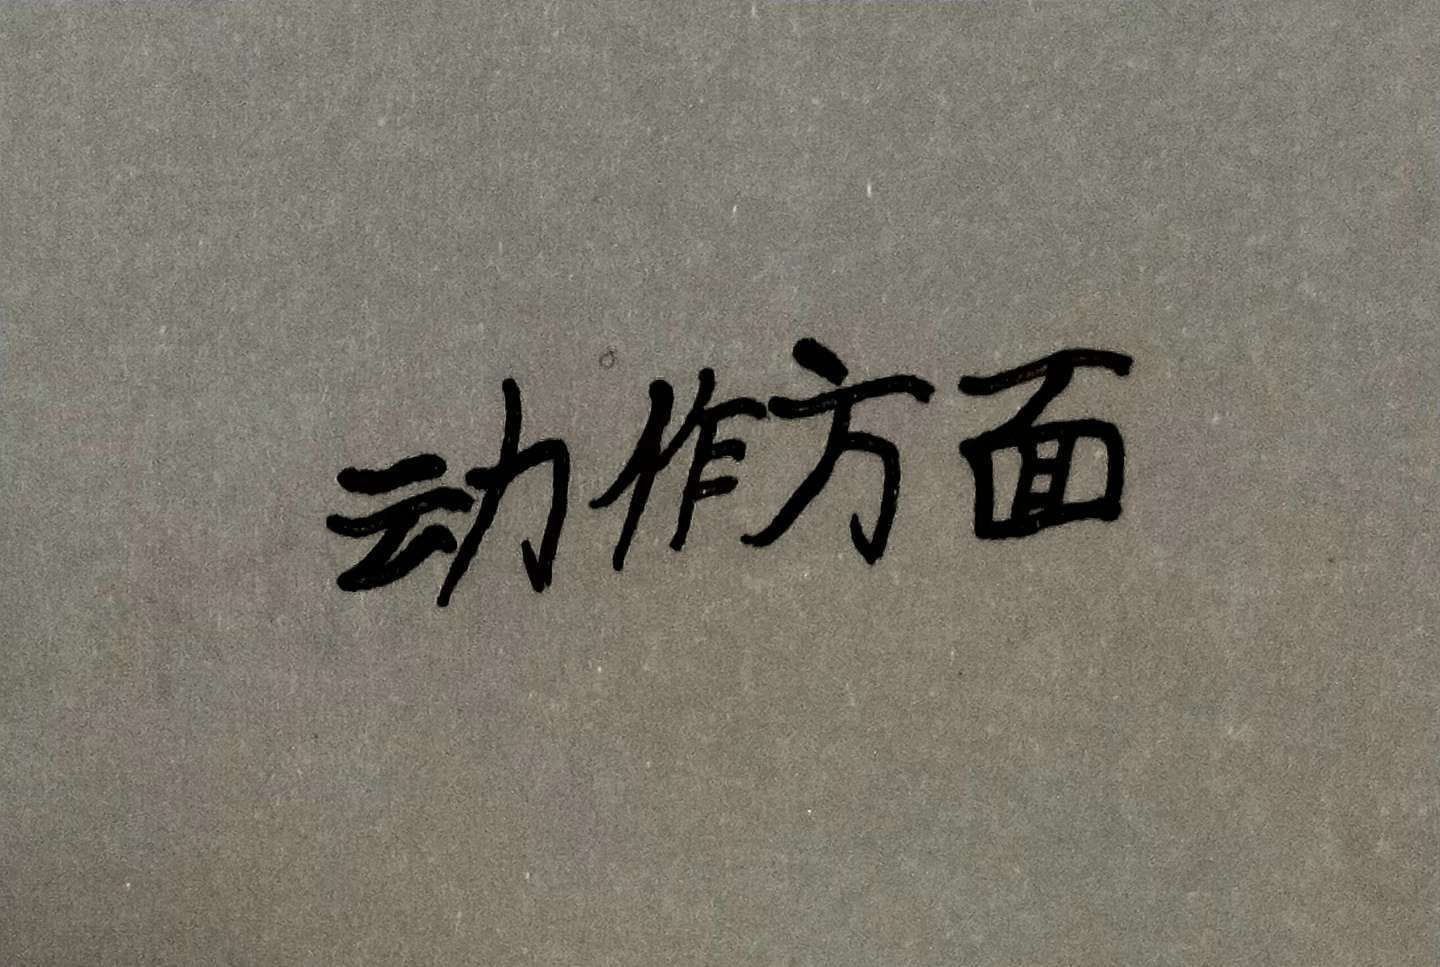 动作方面